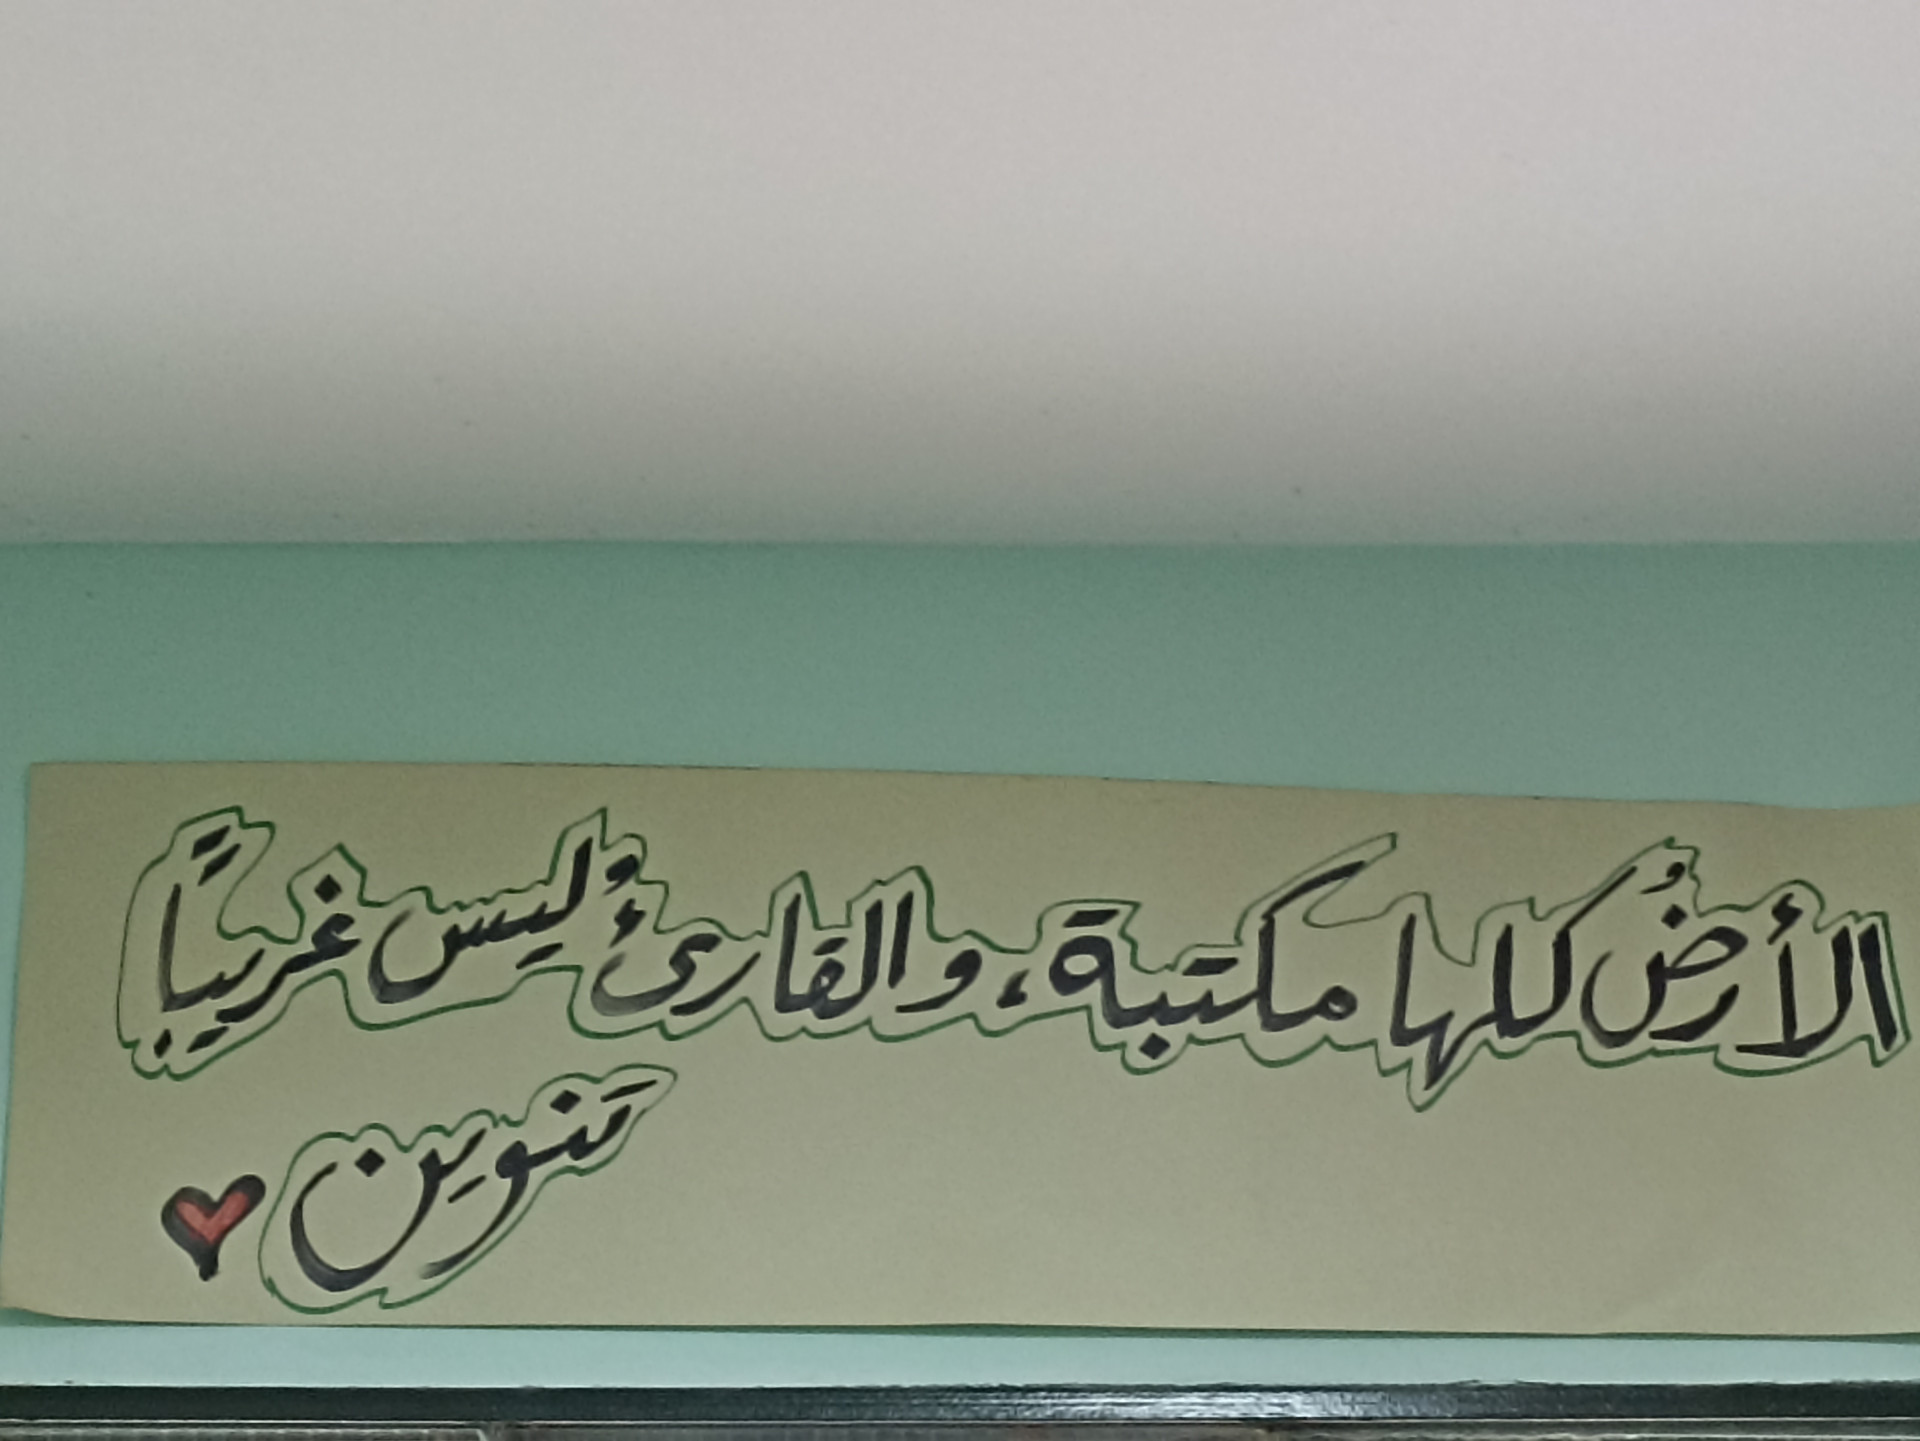 الأرضُ كلها مكتبة، والقارئُ ليس غريباً
تنوين